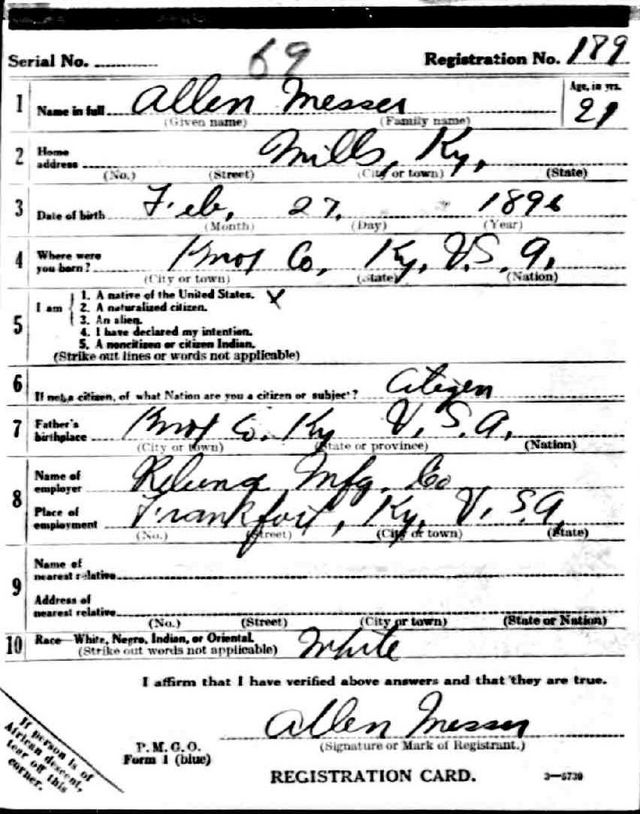 Serial No. 69 Registration No. 189
1 Name in full Allen Messer Age, in yrs. 21
(Given name) (Family name)
2 Home address Mills, Ky,
(No.) (Street) (City or town) (State)
3 Date of birth Feb, 27, 1896
(Month) (Day) (Year)
4 Where were you born? Knox Co, Ky, U.S.A.
(City or town) (State) (Nation)
5 I am
1. A native of the United States. X
2. A naturalized citizen.
3. An alien.
4. I have declared my intention.
5. A noncitizen or citizen Indian.
(Strike out lines or words not applicable)
6 If not a citizen, of what Nation are you a citizen or subject? Citizen
7 Father's birthplace Knox Co. Ky U.S.A.
(City or town) (State or province) (Nation)
8 Name of employer Mfg. Co
Place of employment Frankfort, Ky, U.S.A.
(No.) (Street) (City or town) (State)
9 Name of nearest relative
Address of nearest relative
(No.) (Street) (City or town) (State or Nation)
10 Race—White, Negro, Indian, or Oriental. White
(Strike out words not applicable)
I affirm that I have verified above answers and that they are true.
Allen Messer
(Signature or Mark of Registrant.)
If person is of African descent, tear off this corner.
P. M. G. O.
Form 1 (blue)
REGISTRATION CARD. 3—5739